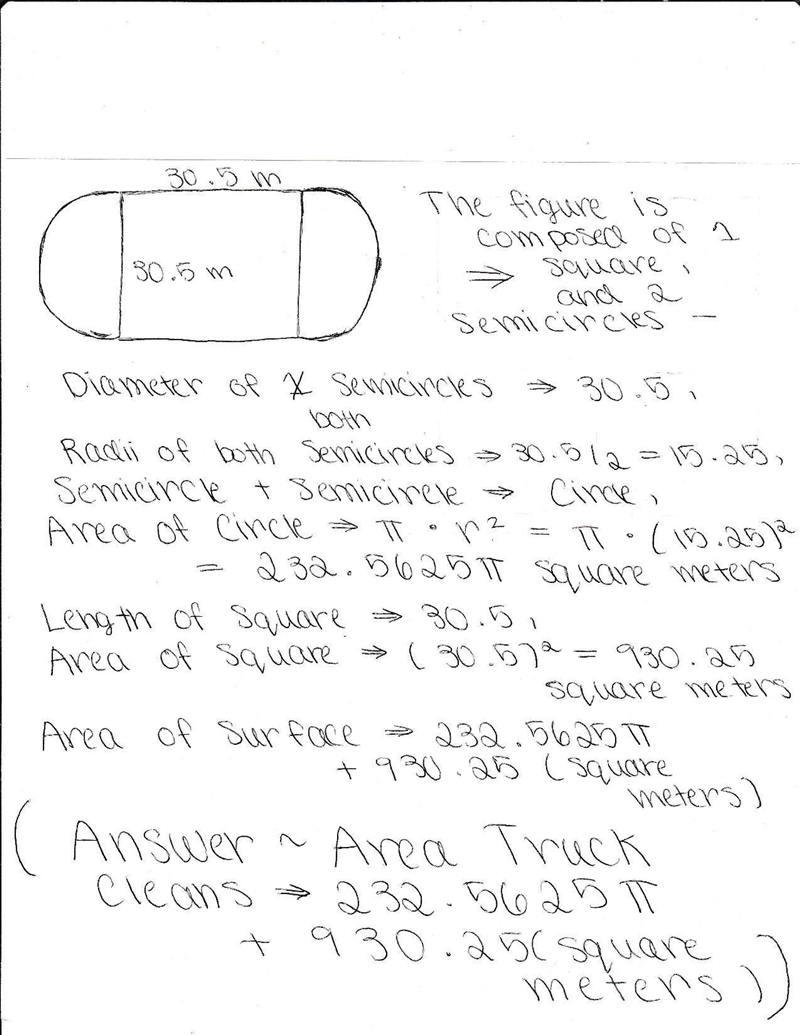 30.5 m
30.5 m
The figure is
composed of 1
⇒ square,
and 2
semicircles –
Diameter of semicircles ⇒ 30.5,
both
Radii of both semicircles ⇒ 30.5/2 = 15.25,
Semicircle + Semicircle ⇒ Circle,
Area of Circle ⇒ π · r² = π · (15.25)²
= 232.5625π square meters
Length of Square ⇒ 30.5,
Area of Square ⇒ (30.5)² = 930.25
square meters
Area of Surface ⇒ 232.5625π
+ 930.25 (square
meters)
(Answer ~ Area Truck
Cleans ⇒ 232.5625π
+ 930.25(square
meters))